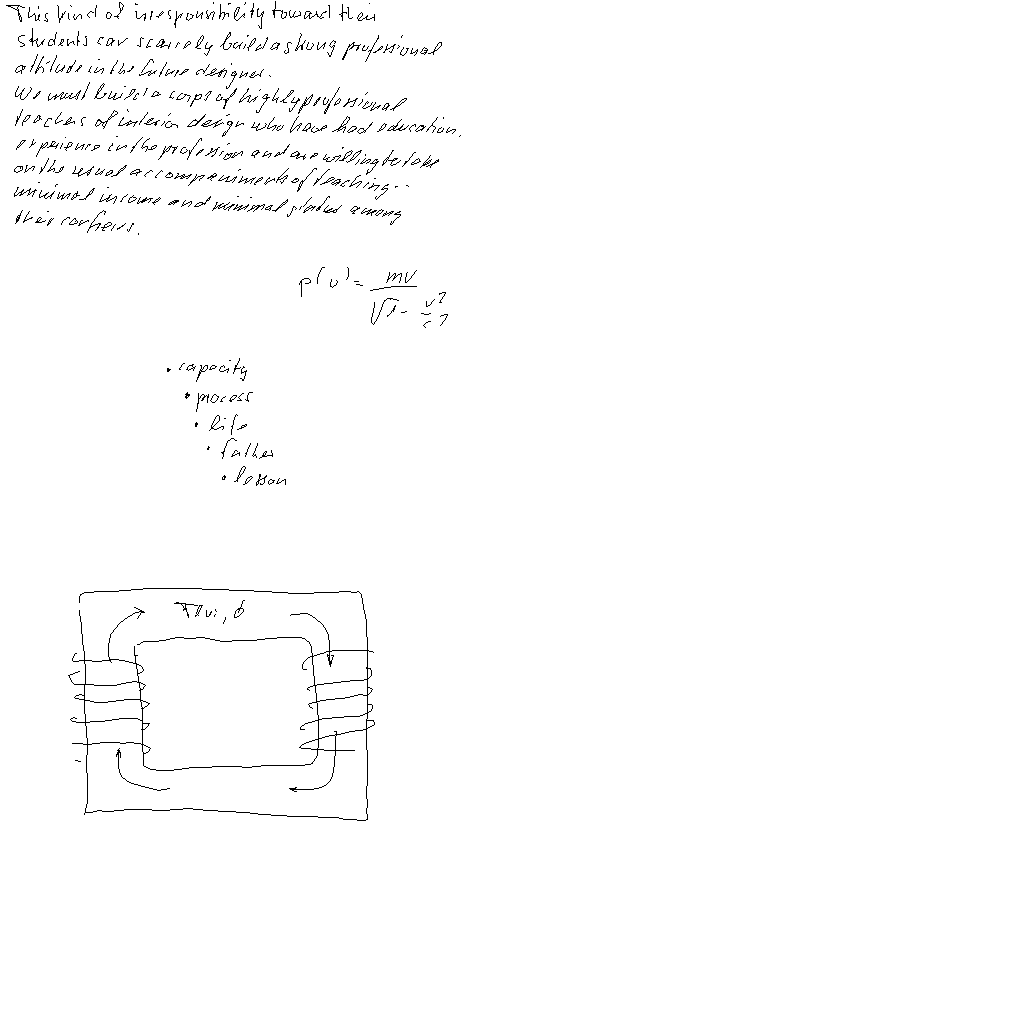 This kind of irresponsibility toward their
students can scarcely build a strong professional
attitude in the future designer.
We must build a corps of highly professional
teachers of interior design who have had education,
experience in the profession and are willing to take
on the usual accompaniments of teaching--
minimal income and minimal status among
their confreres.
p(v) = mv / √1 - v² / c²
• capacity
• process
• life
• father
• lesson
Flux, ϕ